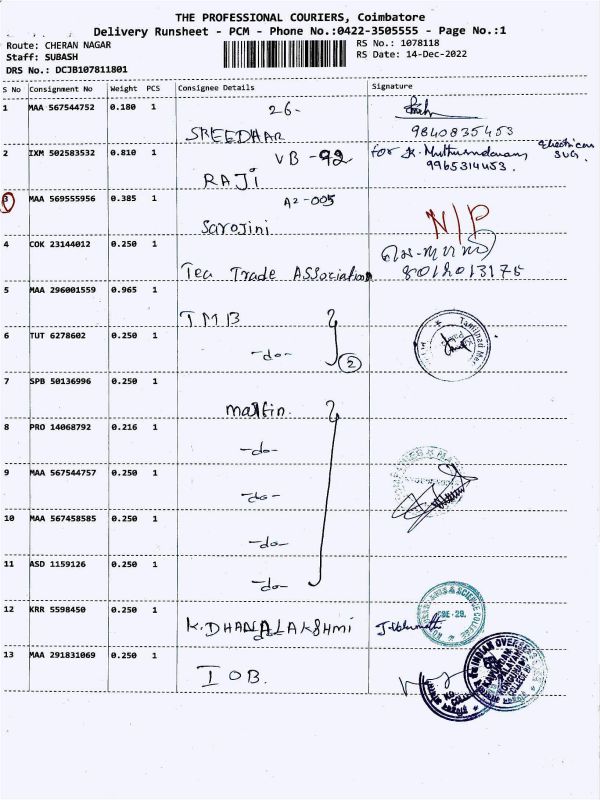 THE PROFESSIONAL COURIERS, Coimbatore
Delivery Runsheet - PCM - Phone No.:0422-3505555 - Page No.:1
Route: CHERAN NAGAR
RS No.: 1078118
Staff: SUBASH
RS Date: 14-Dec-2022
DRS No.: DCJB107811801
S No Consignment No Weight PCS Consignee Details Signature
1 MAA 567544752 0.180 1 26-
SREEDHAR 9840835453
2 IXM 502583532 0.810 1 VB-92 for K. Muthusundaram
RAJi 9965314453.
3 MAA 569555956 0.385 1 A2-005
Sarojini N/P
4 COK 23144012 0.250 1
Tea Trade Association 8012013175
5 MAA 296001559 0.965 1
TMB
6 TUT 6278602 0.250 1
-do- 2
7 SPB 50136996 0.250 1
martin.
8 PRO 14068792 0.216 1
-do-
9 MAA 567544757 0.250 1
-do-
10 MAA 567458585 0.250 1
-do-
11 ASD 1159126 0.250 1
-do-
12 KRR 5598450 0.250 1
K.DHANALAKSHMI
13 MAA 291831069 0.250 1
IOB.